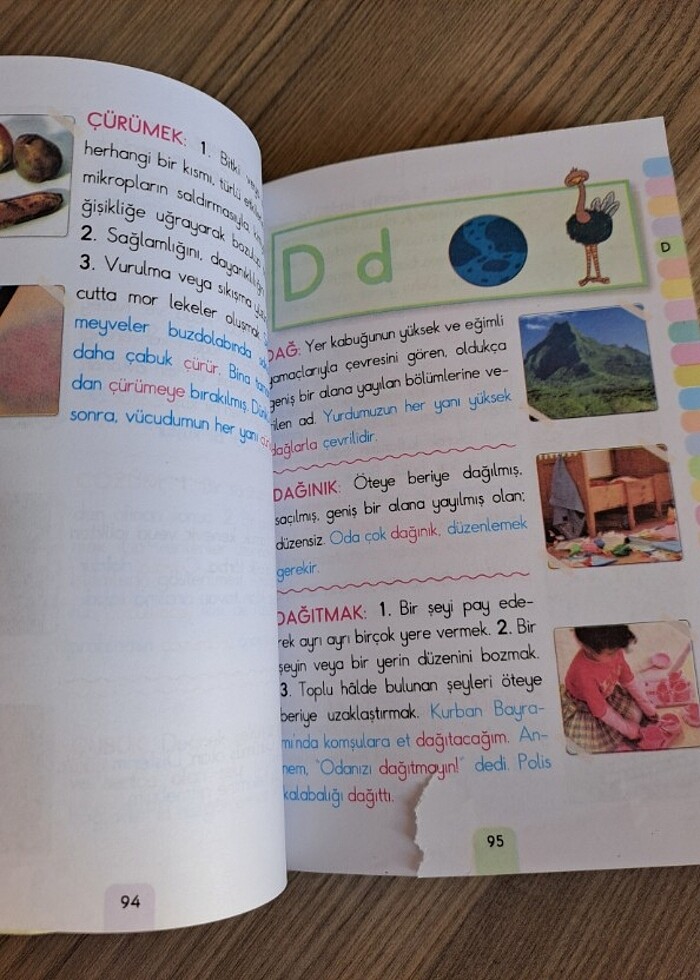 ÇÜRÜMEK: 1. Bitki
herhangi bir kısmı, türlü
mikropların saldırmasıyla
ğişikliğe uğrayarak
2. Sağlamlığını,
3. Vurulma veya sıkışma
cutta mor lekeler oluşmak
meyveler buzdolabında
daha çabuk çürür. Bina
dan çürümeye bırakılmış.
sonra, vücudumun her yanı
94
D d
D
DAĞ: Yer kabuğunun yüksek ve eğimli
yamaçlarıyla çevresini gören, oldukça
geniş bir alana yayılan bölümlerine ve-
rilen ad. Yurdumuzun her yanı yüksek
dağlarla çevrilidir.
DAĞINIK: Öteye beriye dağılmış,
saçılmış, geniş bir alana yayılmış olan;
düzensiz. Oda çok dağınık, düzenlemek
gerekir.
DAĞITMAK: 1. Bir şeyi pay ede-
rek ayrı ayrı birçok yere vermek. 2. Bir
şeyin veya bir yerin düzenini bozmak.
3. Toplu hâlde bulunan şeyleri öteye
beriye uzaklaştırmak. Kurban Bayra-
mı'nda komşulara et dağıtacağım. An-
nem, "Odanızı dağıtmayın!" dedi. Polis
kalabalığı dağıttı.
95